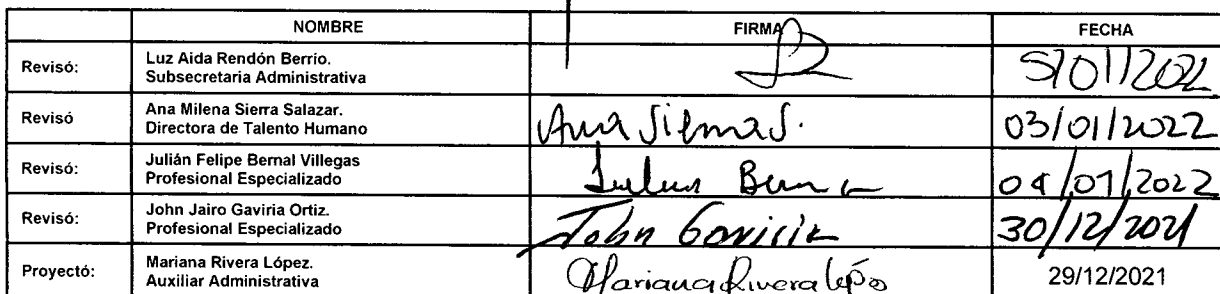 NOMBRE FIRMA FECHA
Revisó: Luz Aida Rendón Berrio.
Subsecretaria Administrativa
5/01/2022
Revisó Ana Milena Sierra Salazar.
Directora de Talento Humano
Ana Sierra S. 03/01/2022
Revisó: Julián Felipe Bernal Villegas
Profesional Especializado
04/01/2022
Revisó: John Jairo Gaviria Ortiz.
Profesional Especializado
John Gaviria 30/12/2021
Proyectó: Mariana Rivera López.
Auxiliar Administrativa
Mariana Rivera López 29/12/2021